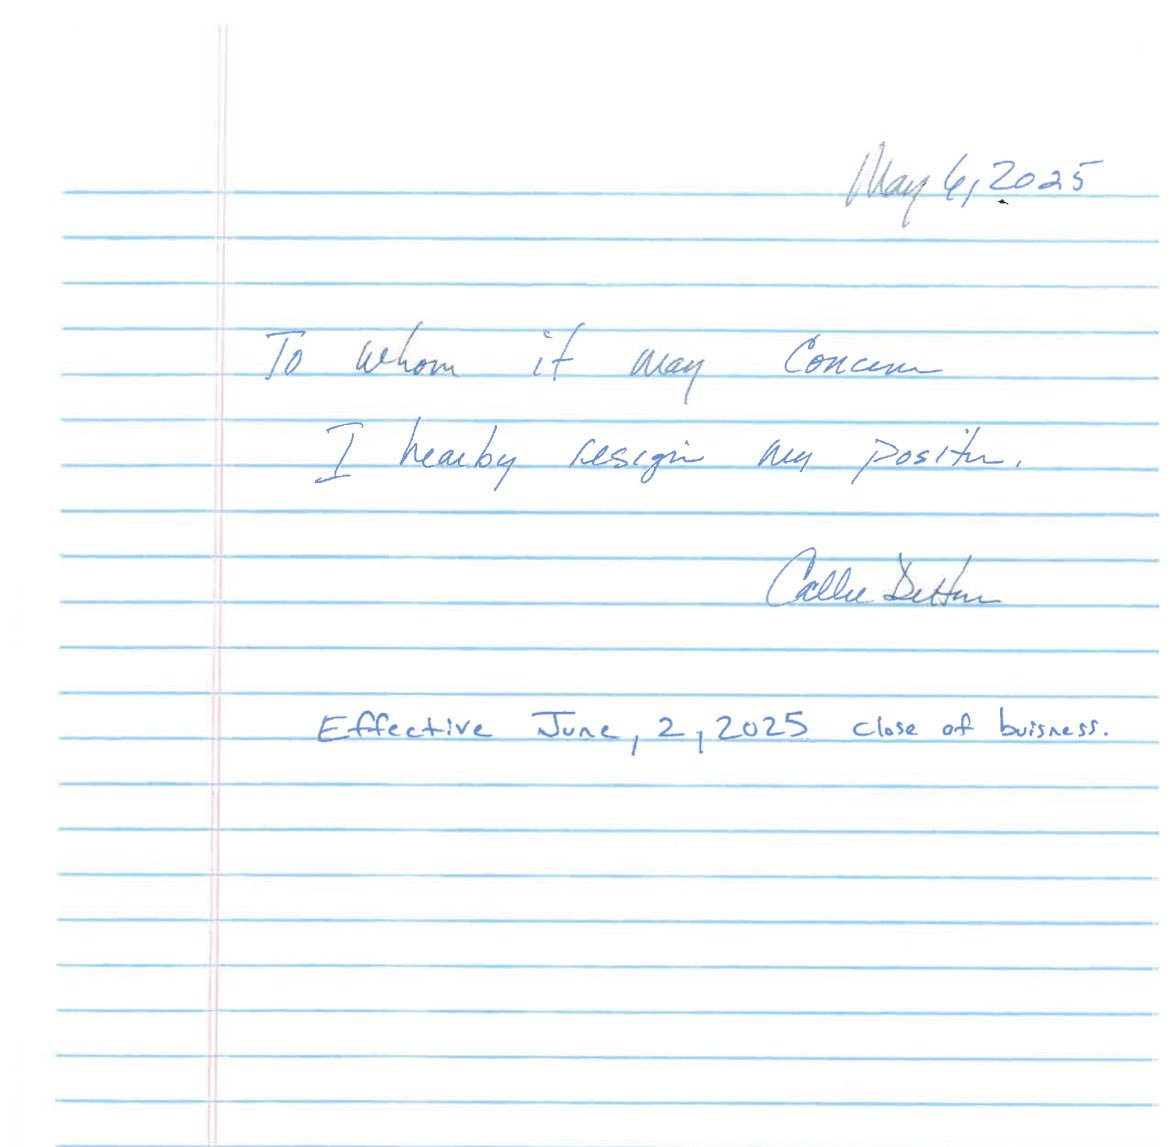 May 6, 2025
To whom it may Concern
I hearby resign my position.
Callie
Effective June, 2, 2025 close of buisness.